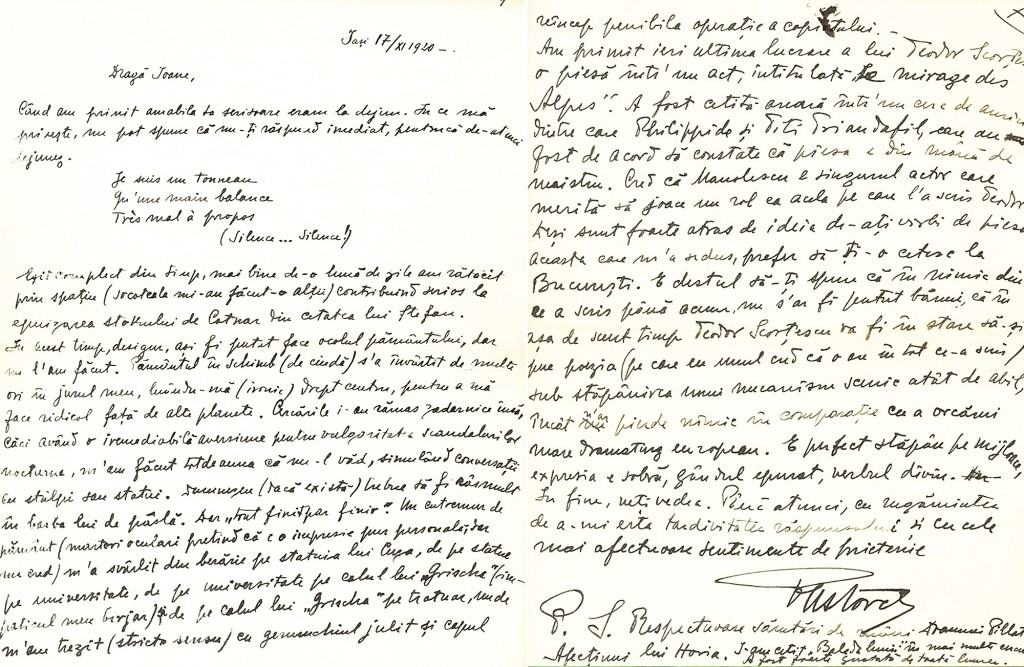 Iași 17/XI 1920 -.
Dragă Ioane,
Când am primit amabila ta scrisoare eram la dejun. În ce mă
privește, nu pot spune că nu-ți răspund imediat, pentrucă de-atunci
dejunez.
Je suis un tonneau
Qu'une main balance
Très mal à propos
(Silence... Silence!)
Eșit complect din timp, mai bine de-o lună de zile am rătăcit
prin spațiu (socoteala mi-au făcut-o alții) contribuind serios la
epuizarea stokului de Cotnar din cetatea lui Ștefan.
În acest timp, desigur, ași fi putut face ocolul pământului, dar
nu l'am făcut. Pământul în schimb (de ciudă) s'a învârtit de multe
ori în jurul meu, luându-mă (ironic) drept centru, pentru a mă
face ridicol față de alte planete. Cercările i-au rămas zadarnice însă,
căci având o iremediabilă aversiune pentru vulgaritatea scandalurilor
nocturne, m'am făcut totdeauna că nu-l văd, simulând conversații
cu stâlpii sau statui. Dumnezeu (dacă există) trebue să fi râs mult
în barba lui de pâslă. Dar „tout finit par finir". Un cutremur de
pământ (martori oculari pretind că e o impresie pur personală dar
nu cred) m'a svârlit din berărie pe statuia lui Cuza, de pe statue
pe universitate, de pe universitate pe calul lui „Grischa" (sim-
paticul meu birjar) și de pe calul lui „Grischa" pe trotuar, unde
m'am trezit (stricto sensu) cu genunchiul julit și capul
reîncep penibila operație a copistului. -
Am primit ieri ultima lucrare a lui Teodor Scorțescu
o piesă într'un act, intitulată „Le mirage des
Alpes". A fost cetită aseară într'un cerc de amici
dintre care Philippide și Titi Triandafil, care au
fost de acord să constate că piesa e din mână de
maistru. Cred că Manolescu e singurul actor care
merită să joace un rol ca acela pe care l'a scris Teodor
Deși sunt foarte atras de ideia de-ați vorbi de piesa
aceasta care m'a sedus, prefer să ți-o cetesc la
București. E destul să-ți spun că în nimic din
ce a scris până acum, nu s'ar fi putut bănui, că în
așa de scurt timp Teodor Scorțescu va fi în stare să-și
pue poezia (pe care eu unul cred că o are în tot ce-a scris)
sub stăpânirea unui mecanism scenic atât de abil,
încât n'ar pierde nimic în comparație cu a oricărui
mare dramaturg european. E perfect stăpân pe mijloace,
expresia e sobră, gândul epurat, verbul divin.
În fine, veți vedea. Până atunci, cu rugămintea
de a-mi erta tardivitatea răspunsului și cu cele
mai afectuoase sentimente de prietenie
Păstorel
P. S. Respectuoase sărutări de mâini Doamnei Pillat
Afecțiuni lui Horia. I-am cetit „Balada lunii" în mai multe
A fost foarte gustată de toată lumea.